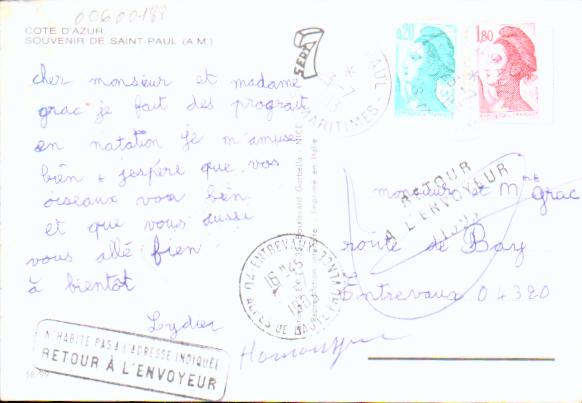 00600188
COTE D'AZUR
SOUVENIR DE SAINT-PAUL (A.M.)
cher monsieur et madame
grac je fait des prograit
en natation je m'amuse
bien j'espère que vos
oiseaux von bén
et que vous aussi
vous allé bien
à bientôt
Lydier
0,20
1,80
MARITIMES
RETOUR
A L'ENVOYEUR
monsieur et Mme grac
route de Bay
Entrevaux 04320
04 ENTREVAUX
16 H 45
ALPES DE HAUTE
Imprimé en Italie
N'HABITE PAS A L'ADRESSE INDIQUÉE
RETOUR À L'ENVOYEUR